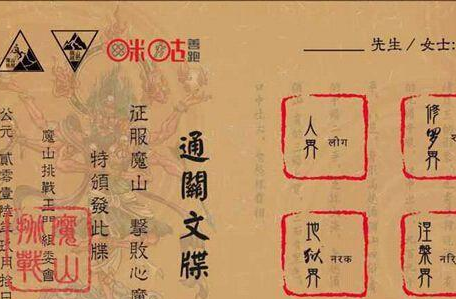 咪咕善跑
先生 / 女士:
人界 लोग
修罗界
地狱界 नरक
涅槃界 नरि
通關文牒
征服魔山 擊敗心魔
特頒發此牒
魔山挑戰王門 組委會
公元 貳零壹陸年玖月拾
魔山挑戰